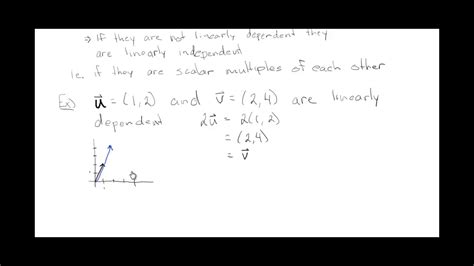 ⇒ If they are not linearly dependent they
are linearly independent
i.e. if they are scalar multiples of each other
Ex) u⃗ = (1,2) and v⃗ = (2,4) are linearly
dependent 2u⃗ = 2(1,2)
= (2,4)
= v⃗